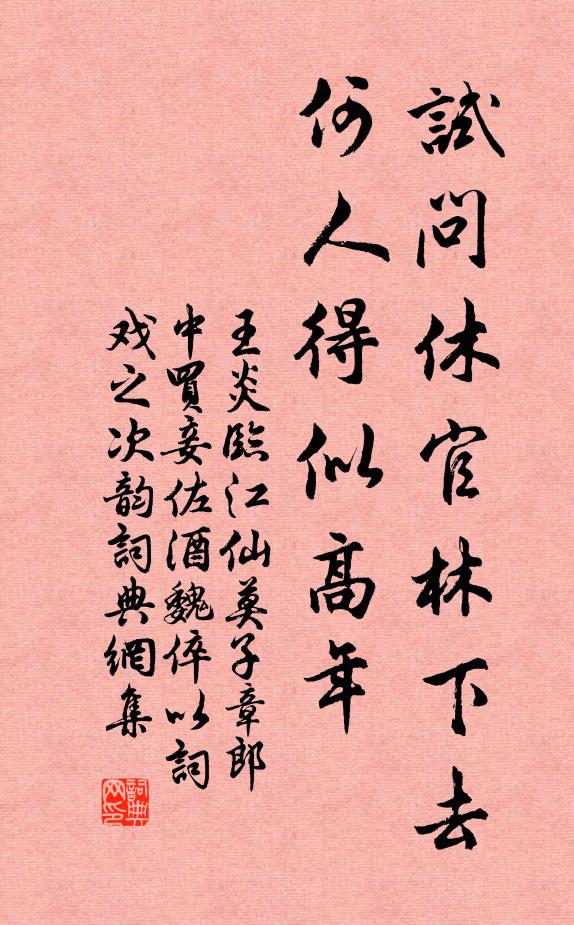 試問休官林下去
何人得似高年
王炎臨江仙莫子章郎
中買妾佐酒魏倅以詞
戏之次韵詞典網集
詞典
网印